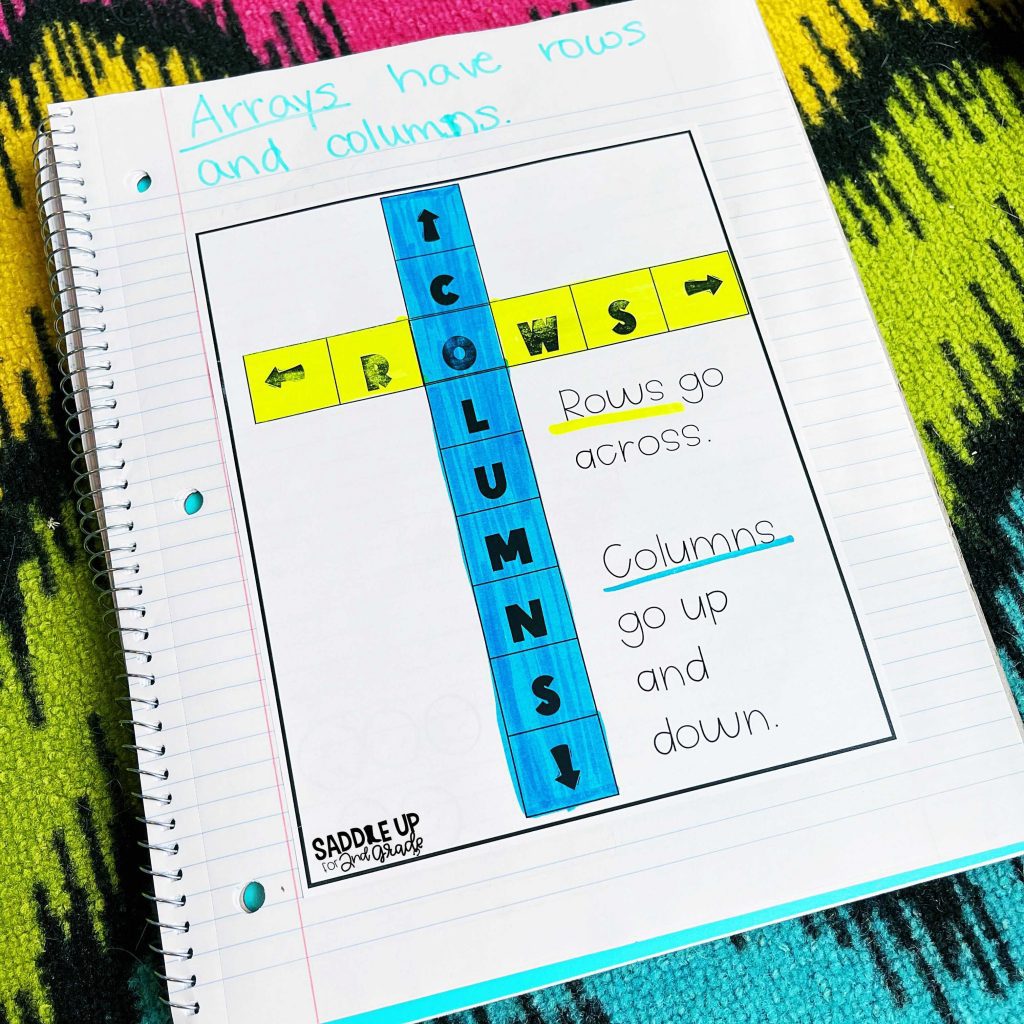 Arrays have rows
and columns.
↑
C
← R O W S →
L
U
M
N
S
↓
Rows go
across.
Columns
go up
and
down.
SADDLE UP
FOR 2nd Grade